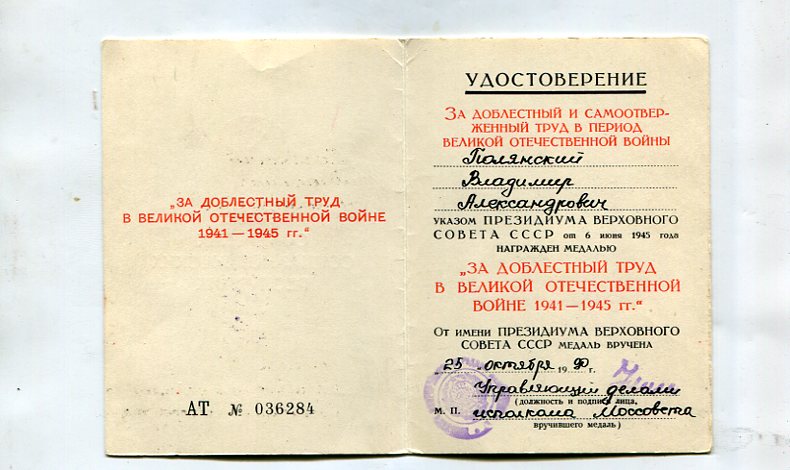 „ЗА ДОБЛЕСТНЫЙ ТРУД
В ВЕЛИКОЙ ОТЕЧЕСТВЕННОЙ ВОЙНЕ
1941—1945 гг.“
АТ № 036284
УДОСТОВЕРЕНИЕ
ЗА ДОБЛЕСТНЫЙ И САМООТВЕР-
ЖЕННЫЙ ТРУД В ПЕРИОД
ВЕЛИКОЙ ОТЕЧЕСТВЕННОЙ ВОЙНЫ
Полянский
Владимир
Александрович
УКАЗОМ ПРЕЗИДИУМА ВЕРХОВНОГО
СОВЕТА СССР от 6 июня 1945 года
НАГРАЖДЕН МЕДАЛЬЮ
„ЗА ДОБЛЕСТНЫЙ ТРУД
В ВЕЛИКОЙ ОТЕЧЕСТВЕННОЙ
ВОЙНЕ 1941—1945 гг.“
ОТ ИМЕНИ ПРЕЗИДИУМА ВЕРХОВНОГО
СОВЕТА СССР МЕДАЛЬ ВРУЧЕНА
„25 октября 1990 г.
Управляющий делами
(должность и подпись лица,
М. П. исполкома Моссовета
вручившего медаль)